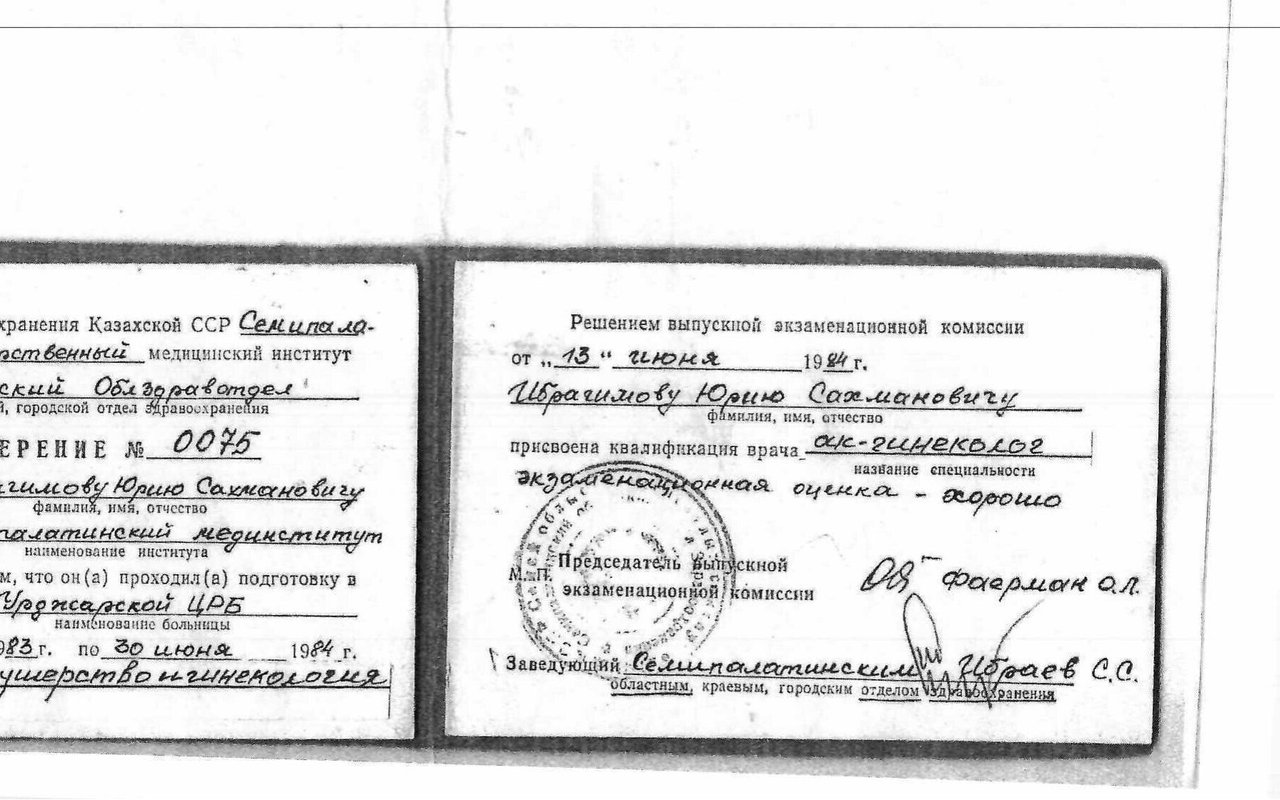 хранения Казахской ССР Семипала-
рственный медицинский институт
ский Облздравотдел
й, городской отдел здравоохранения
ЕРЕНИЕ № 0075
агимову Юрию Сахмановичу
фамилия, имя, отчество
палатинский мединститут
наименование института
м, что он(а) проходил(а) подготовку в
Урджарской ЦРБ
наименование больницы
983 г. по 30 июня 1984 г.
ушерство и гинекология
Решением выпускной экзаменационной комиссии
от „13" июня 1984 г.
Ибрагимову Юрию Сахмановичу
фамилия, имя, отчество
присвоена квалификация врача ак-гинеколог
название специальности
экзаменационная оценка - хорошо
Председатель выпускной
М. П.
экзаменационной комиссии Фаерман О.Л.
Заведующий Семипалатинским Ибраев С.С.
областным, краевым, городским отделом здравоохранения